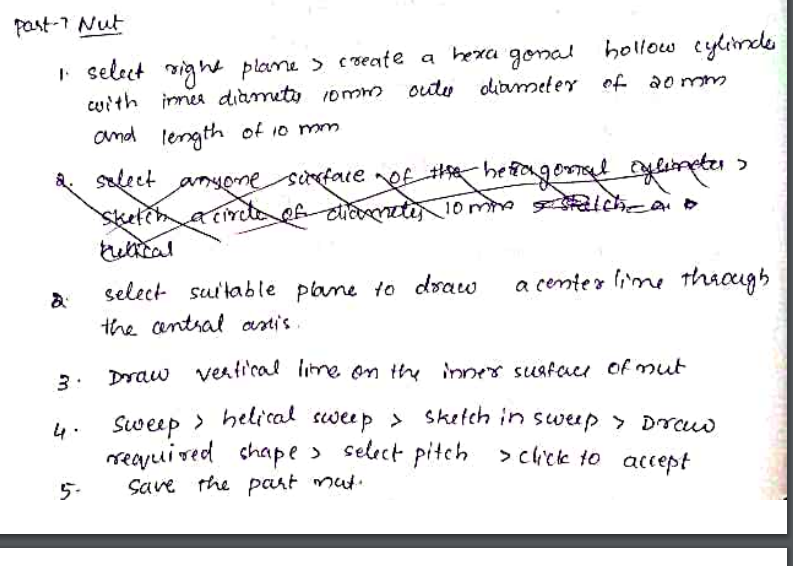 Part-7 Nut
1. select right plane > create a hexa gonal hollow cylinder
with inner diameter 10mm outer diameter of 20 mm
and length of 10 mm
2. select anyone surface of the hexagonal cylinder >
sketch a circle of diameter 10 mm > sketch
helical
2. select suitable plane to draw a center line through
the central axis.
3. Draw vertical line on the inner surface of nut
4. Sweep > helical sweep > sketch in sweep > Draw
required shape > select pitch > click to accept
5. Save the part nut.